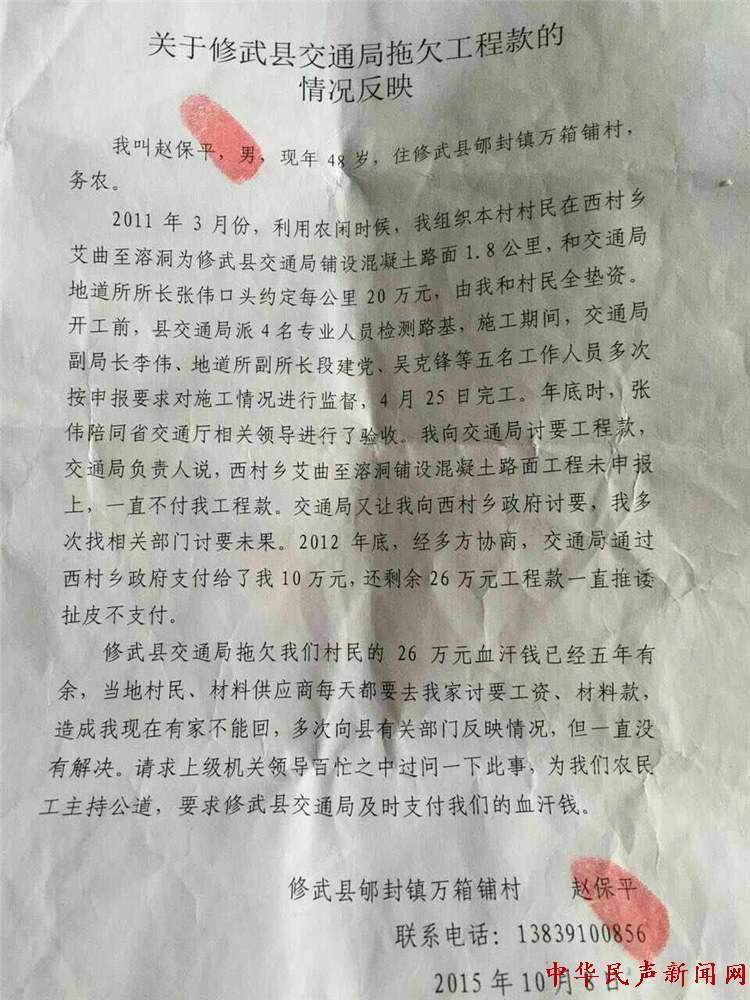 关于修武县交通局拖欠工程款的
情况反映
我叫赵保平，男，现年48岁，住修武县郇封镇万箱铺村，
务农。
2011年3月份，利用农闲时候，我组织本村村民在西村乡
艾曲至溶洞为修武县交通局铺设混凝土路面1.8公里，和交通局
地道所所长张伟口头约定每公里20万元，由我和村民全垫资。
开工前，县交通局派4名专业人员检测路基，施工期间，交通局
副局长李伟、地道所副所长段建党、吴克锋等五名工作人员多次
按申报要求对施工情况进行监督，4月25日完工。年底时，张
伟陪同省交通厅相关领导进行了验收。我向交通局讨要工程款，
交通局负责人说，西村乡艾曲至溶洞铺设混凝土路面工程未申报
上，一直不付我工程款。交通局又让我向西村乡政府讨要，我多
次找相关部门讨要未果。2012年底，经多方协商，交通局通过
西村乡政府支付给了我10万元，还剩余26万元工程款一直推诿
扯皮不支付。
修武县交通局拖欠我们村民的26万元血汗钱已经五年有
余，当地村民、材料供应商每天都要去我家讨要工资、材料款，
造成我现在有家不能回，多次向县有关部门反映情况，但一直没
有解决。请求上级机关领导百忙之中过问一下此事，为我们农民
工主持公道，要求修武县交通局及时支付我们的血汗钱。
修武县郇封镇万箱铺村 赵保平
联系电话：13839100856
2015年10月8日
中华民声新闻网